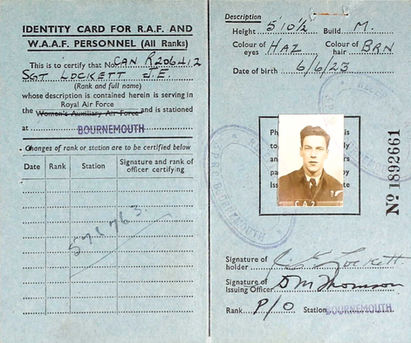 IDENTITY CARD FOR R.A.F. AND
W.A.A.F. PERSONNEL (All Ranks)
This is to certify that No. CAN R206412
SGT LOCKETT J.E.
(Rank and full name)
whose description is contained herein is serving in
Royal Air Force
the Women's Auxiliary Air Force and is stationed
at BOURNEMOUTH
Changes of rank or station are to be certified below
Date Rank Station Signature and rank of
officer certifying
Description
Height 5' 10½ Build M.
Colour of
eyes HAZ Colour of
hair BRN
Date of birth 6/6/23
Ph is
to
a
pa
by
Issu te
CAZ
BOURNEMOUTH
No 1892661
Signature of
holder J. E. Lockett
Signature of
Issuing Officer D M Thomson
Rank P/O Station BOURNEMOUTH.